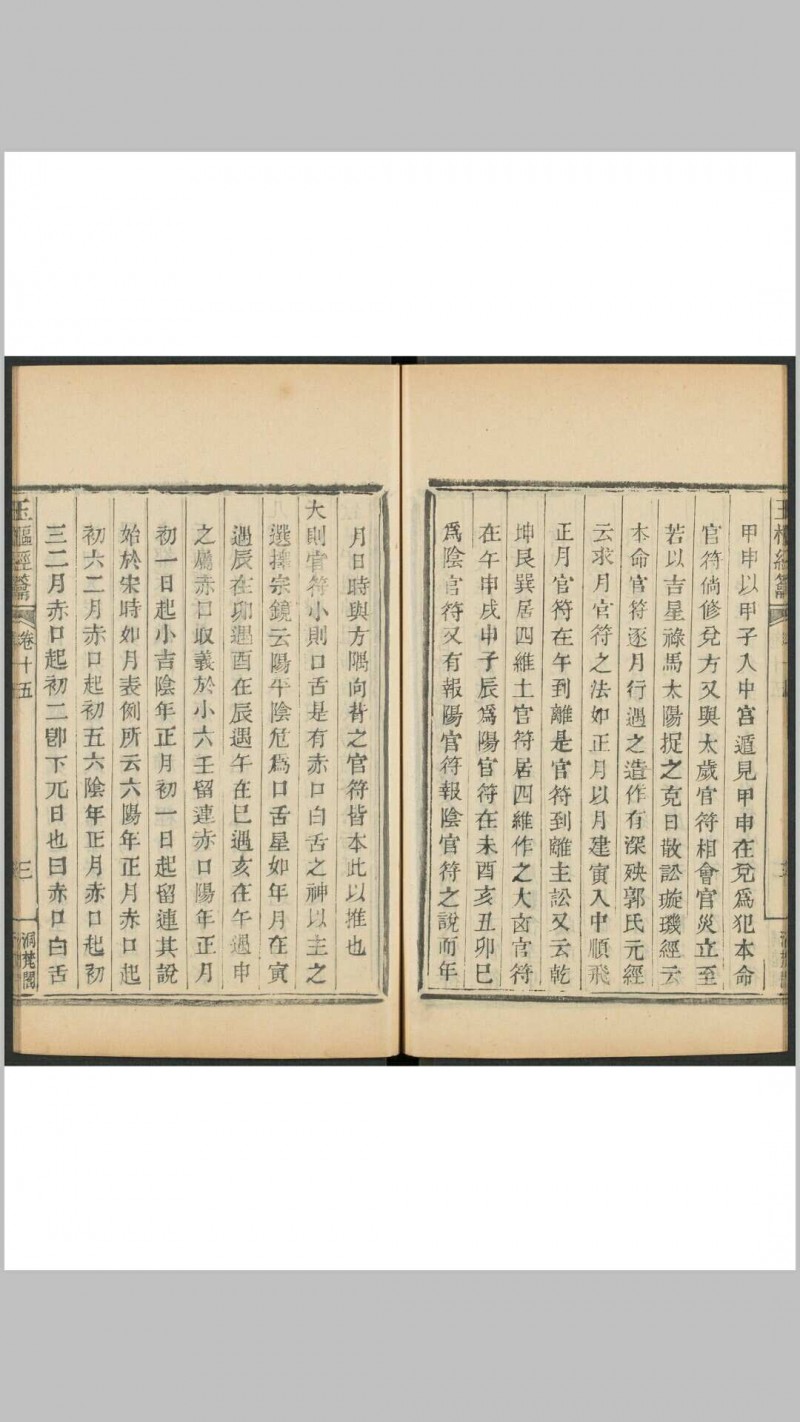 甲申以甲子入中宮遁見甲申在兌爲犯本命
官符倘修兌方又與太歲官符相會官災立至
若以吉星祿馬太陽捉之克日散訟璇璣經云
本命官符逐月行遇之造作有深殃郭氏元經
云求月官符之法如正月以月建寅入中順飛
正月官符在午到離是官符到離主訟又云乾
坤艮巽居四維土官符居四維作之大凶官符
在午申戌申子辰爲陽官符在未酉亥丑卯巳
爲陰官符又有報陽官符報陰官符之說而年
月日時與方隅向背之官符皆本此以推也
大則官符小則口舌是有赤口白舌之神以主之
選擇宗鏡云陽平陰危爲口舌星如年月在寅
遇辰在卯遇酉在辰遇午在巳遇亥在午遇申
之屬赤口取義於小六壬留連赤口陽年正月
初一日起小吉陰年正月初一日起留連其說
始於宋時如月表例所云六陽年正月赤口起
初六二月赤口起初五六陰年正月赤口起初
三二月赤口起初二卽下元日也曰赤口白舌
玉樞經籥
卷十五
三